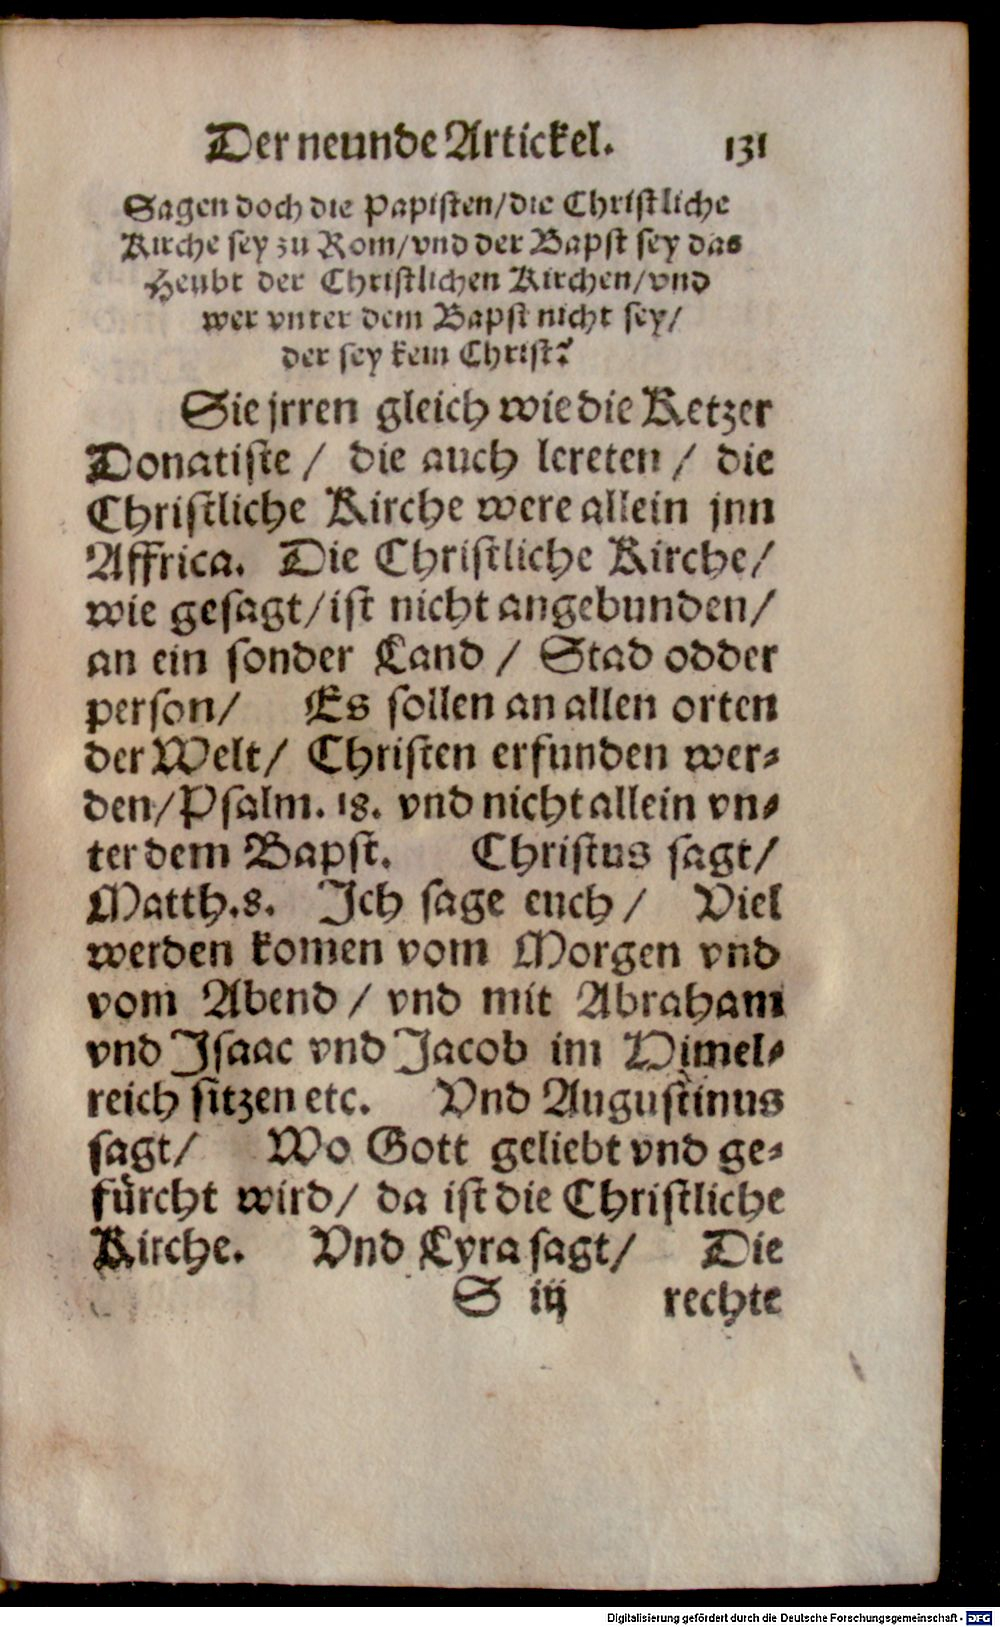 Der neunde Artickel. 131
Sagen doch die Papisten/die Christliche
Kirche sey zu Rom/vnd der Bapst sey das
Heubt der Christlichen Kirchen/vnd
wer vnter dem Bapst nicht sey/
der sey kein Christ?
Sie jrren gleich wie die Ketzer
Donatiste / die auch lereten / die
Christliche Kirche were allein jnn
Affrica. Die Christliche Kirche/
wie gesagt/ist nicht angebunden/
an ein sonder Land / Stad odder
person/ Es sollen an allen orten
der Welt/ Christen erfunden wer-
den/Psalm. 18. vnd nicht allein vn-
ter dem Bapst. Christus sagt/
Matth.8. Ich sage euch / Viel
werden komen vom Morgen vnd
vom Abend / vnd mit Abraham
vnd Isaac vnd Jacob im Himel-
reich sitzen etc. Vnd Augustinus
sagt/ Wo Gott geliebt vnd ge-
fürcht wird/ da ist die Christliche
Kirche. Vnd Lyra sagt/ Die
S iij rechte
Digitalisierung gefördert durch die Deutsche Forschungsgemeinschaft - DFG